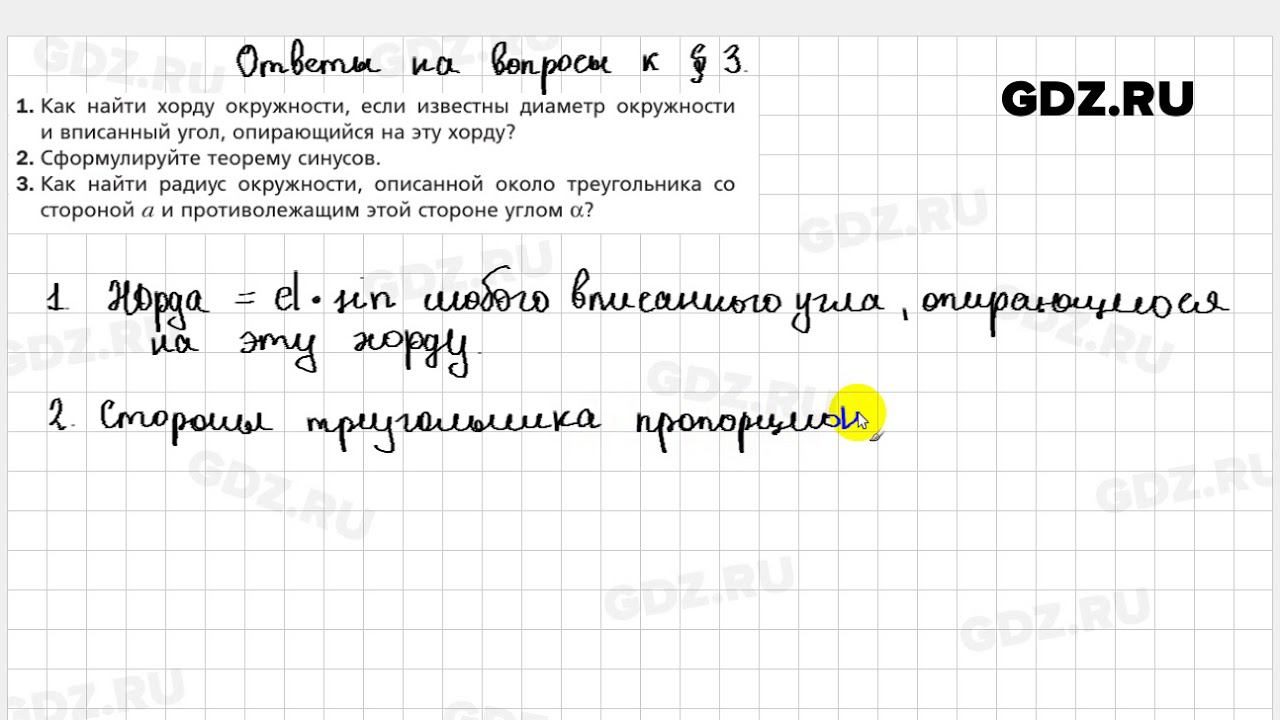 Ответы на вопросы к § 3.
GDZ.RU
1. Как найти хорду окружности, если известны диаметр окружности
и вписанный угол, опирающийся на эту хорду?
2. Сформулируйте теорему синусов.
3. Как найти радиус окружности, описанной около треугольника со
стороной a и противолежащим этой стороне углом α?
1. Хорда = d · sin любого вписанного угла, опирающегося
на эту хорду.
2. Стороны треугольника пропорцион
GDZ.RU
GDZ.RU
GDZ.RU
GDZ.RU
GDZ.RU
GDZ.RU
GDZ.RU
GDZ.RU
GDZ.RU
GDZ.RU
GDZ.RU
GDZ.RU
GDZ.RU